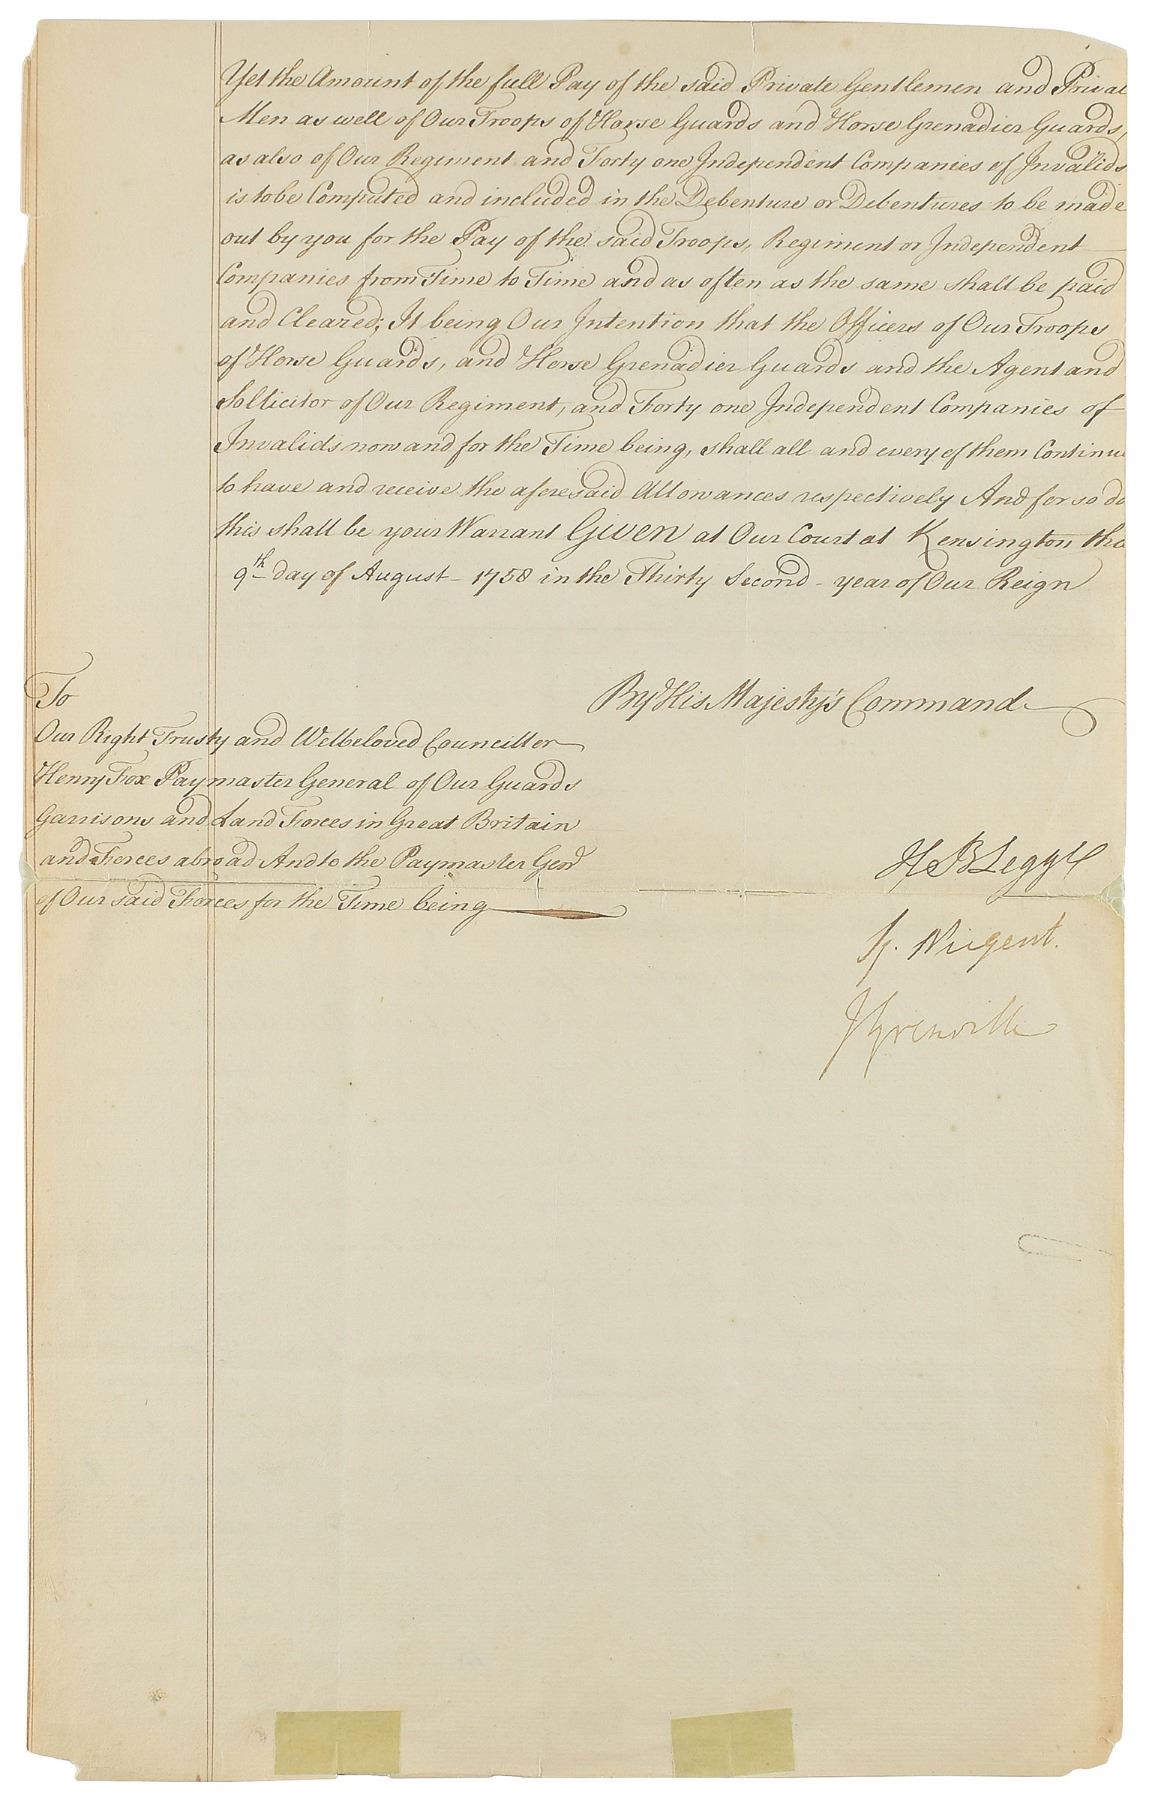 Yet the Amount of the full Pay of the said Private Gentlemen and Privat
Men as well of Our Troops of Horse Guards and Horse Grenadier Guards,
as also of Our Regiment and Forty one Independent Companies of Invalids
is to be Computed and included in the Debenture or Debentures to be made
out by you for the Pay of the said Troops, Regiment or Independent
Companies from Time to Time and as often as the same shall be paid
and Cleared; It being Our Intention that the Officers of Our Troops
of Horse Guards, and Horse Grenadier Guards and the Agent and
Sollicitor of Our Regiment, and Forty one Independent Companies of
Invalids now and for the Time being, shall all and every of them Continue
to have and receive the aforesaid Allowances respectively And for so do
this shall be your Warrant Given at Our Court at Kensington the
9th day of August - 1758 in the Thirty Second - year of Our Reign
By His Majesty's Command
To
Our Right Trusty and Welbeloved Councillor
Henry Fox Paymaster General of Our Guards
Garrisons and Land Forces in Great Britain
and Forces abroad And to the Paymaster Genl
of Our said Forces for the Time being
H B Legge
Nugent.
J Grenville